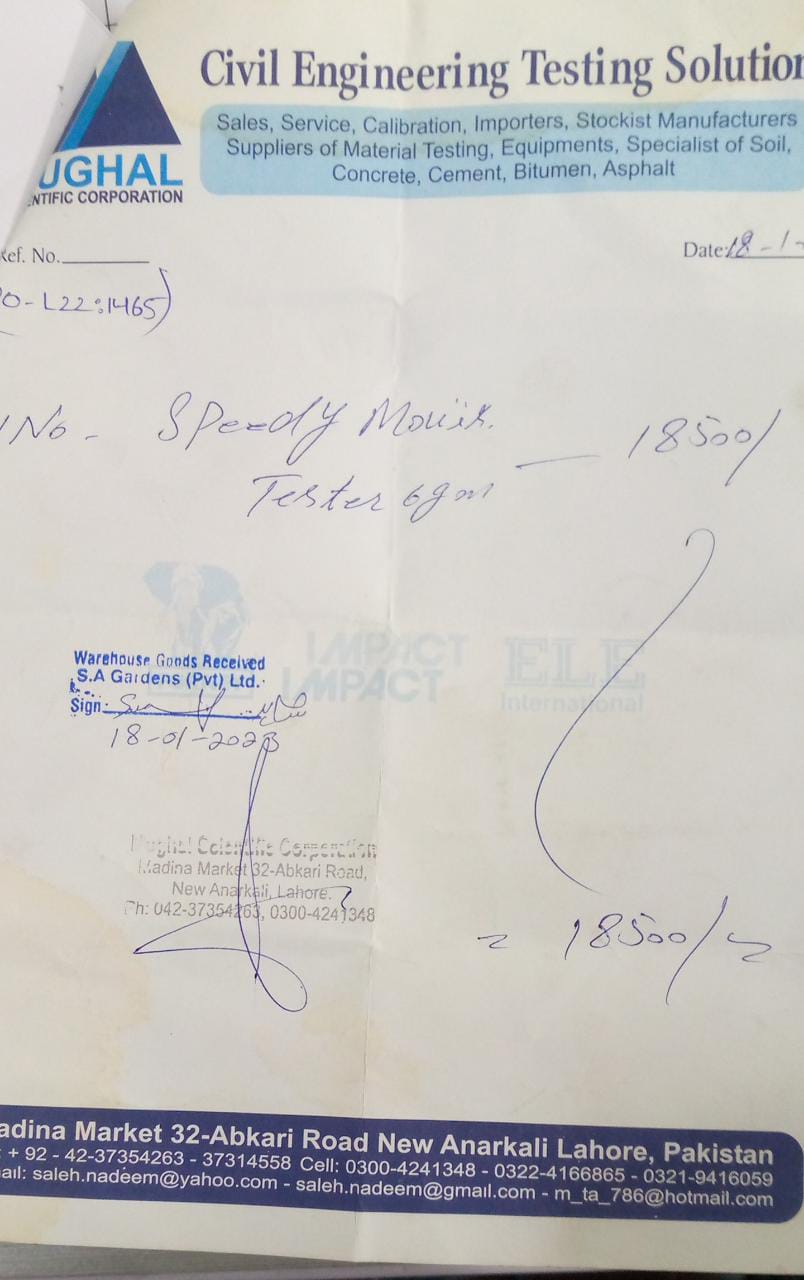 Civil Engineering Testing Solution
Sales, Service, Calibration, Importers, Stockist Manufacturers
Suppliers of Material Testing, Equipments, Specialist of Soil,
Concrete, Cement, Bitumen, Asphalt
UGHAL
NTIFIC CORPORATION
Ref. No.
Date: 18-1-
O-L22:1465)
1 No - Speedy
Tester 6gm — 18500/
IMPACT
IMPACT
ELE
International
Warehouse Goods Received
S.A Gardens (Pvt) Ltd.
Sign:
18-01-2023
Mughal Scientific Corporation
Madina Market 32-Abkari Road,
New Anarkali, Lahore.
Ph: 042-37354263, 0300-4241348
= 18500/=
adina Market 32-Abkari Road New Anarkali Lahore, Pakistan
: + 92 - 42-37354263 - 37314558 Cell: 0300-4241348 - 0322-4166865 - 0321-9416059
ail: saleh.nadeem@yahoo.com - saleh.nadeem@gmail.com - m_ta_786@hotmail.com